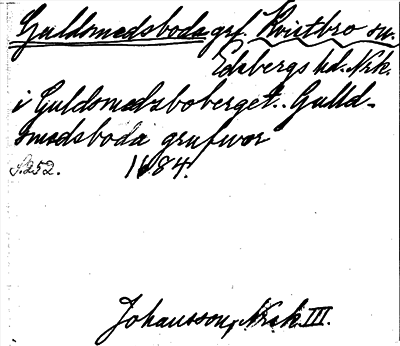 Guldsmedsboda grf. Kvistbro sn.
Edsbergs hd. Nrk.
i Guldsmedsboberget.. Gulld-
smedsboda grufwor
S.252. 1684.
Johansson, Nrk III.